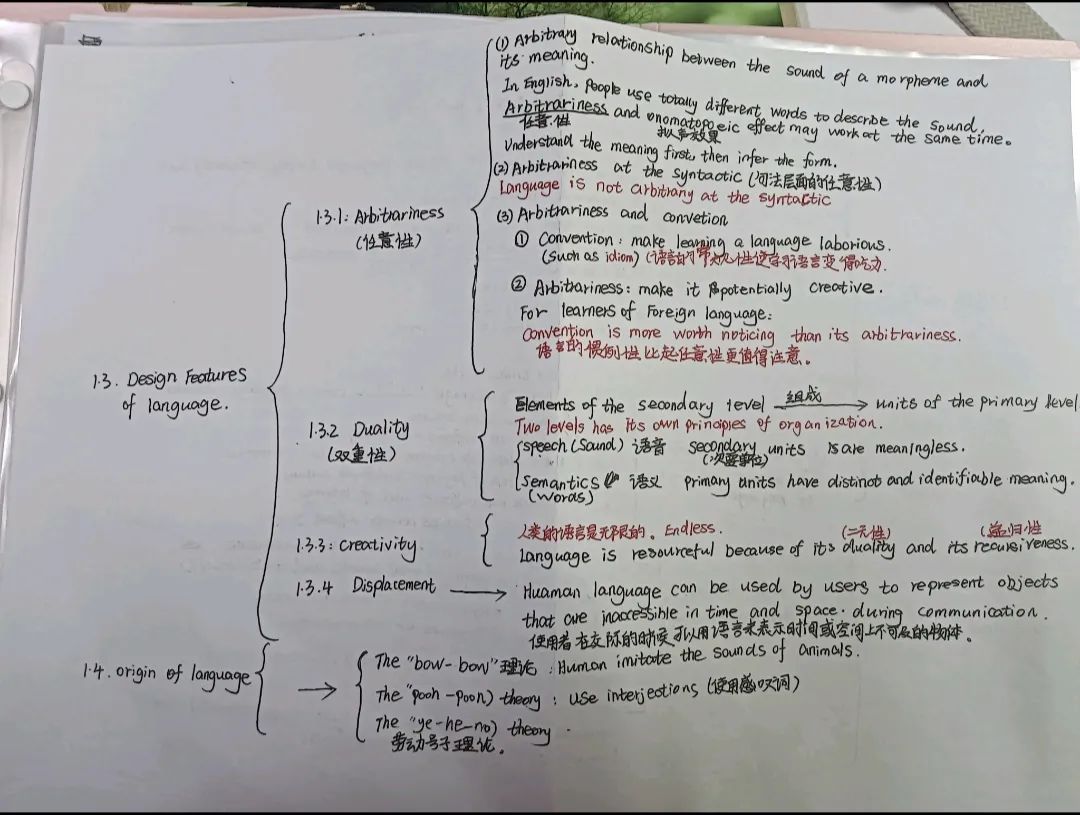 (1) Arbitrary relationship between the sound of a morpheme and
its meaning.
In English, people use totally different words to describe the sound.
Arbitrariness and onomatopoeic effect may work at the same time.
任意性 拟声效果
Understand the meaning first, then infer the form.
(2) Arbitrariness at the syntactic (句法层面的任意性)
Language is not arbitrary at the syntactic
1.3.1: Arbitrariness
(任意性)
(3) Arbitrariness and convetion
① Convention: make learning a language laborious.
(such as idiom) (语言的常规性使学习语言变得吃力.
② Arbitrariness: make it potentially creative.
For learners of Foreign language:
Convention is more worth noticing than its arbitrariness.
语言的惯例性比起任意性更值得注意。
1.3. Design Features
of language.
1.3.2 Duality
(双重性)
Elements of the secondary level 组成 → units of the primary level
Two levels has its own principles of organization.
speech (Sound) 语音 secondary units is are meaningless.
(次要单位)
semantics 语义 primary units have distinct and identifiable meaning.
(words)
1.3.3: creativity
人类的语言是无限的。Endless. (二元性) (递归性
Language is resourceful because of its duality and its recursiveness.
1.3.4 Displacement → Huaman language can be used by users to represent objects
that are inaccessible in time and space. during communication.
使用者在交际的时候可以用语言来表示时间或空间上不可及的物体。
1.4. origin of language →
The "bow-bow" 理论: Human imitate the sounds of animals.
The "pooh-pooh) theory: use interjections (使用感叹词)
The "ye-he-no) theory.
劳动号子理论。